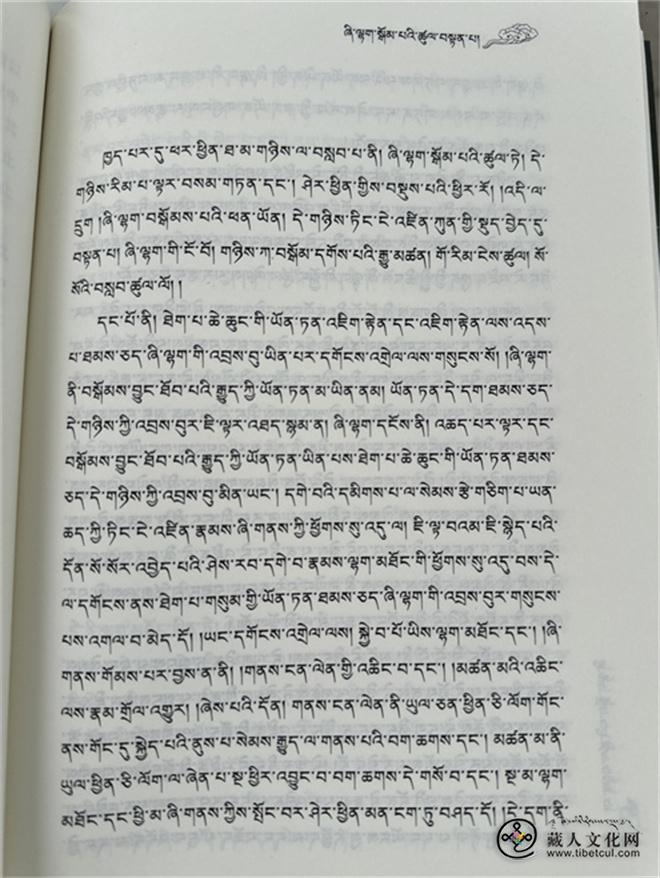 ཞི་ལྷག་སྒོམ་པའི་ཚུལ་བསྟན་པ།
ཁྱད་པར་དུ་ཕར་ཕྱིན་ཐ་མ་གཉིས་ལ་བསླབ་པ་ནི། ཞི་ལྷག་སྒོམ་པའི་ཚུལ་ཏེ། དེ་
གཉིས་རིམ་པ་ལྟར་བསམ་གཏན་དང་། ཤེར་ཕྱིན་གྱིས་བསྡུས་པའི་ཕྱིར་རོ། །འདི་ལ་
དྲུག །ཞི་ལྷག་བསྒོམས་པའི་ཕན་ཡོན། དེ་གཉིས་ཏིང་ངེ་འཛིན་ཀུན་གྱི་སྡུད་བྱེད་དུ་
བསྟན་པ། ཞི་ལྷག་གི་ངོ་བོ། གཉིས་ཀ་བསྒོམ་དགོས་པའི་རྒྱུ་མཚན། གོ་རིམ་ངེས་ཚུལ། སོ་
སོའི་བསླབ་ཚུལ་ལོ། །
དང་པོ་ནི། ཐེག་པ་ཆེ་ཆུང་གི་ཡོན་ཏན་འཇིག་རྟེན་དང་འཇིག་རྟེན་ལས་འདས་
པ་ཐམས་ཅད་ཞི་ལྷག་གི་འབྲས་བུ་ཡིན་པར་དགོངས་འགྲེལ་ལས་གསུངས་སོ། །ཞི་ལྷག་
ནི་བསྒོམས་བྱུང་ཐོབ་པའི་རྒྱུད་ཀྱི་ཡོན་ཏན་མ་ཡིན་ནམ། ཡོན་ཏན་དེ་དག་ཐམས་ཅད་
དེ་གཉིས་ཀྱི་འབྲས་བུར་ཇི་ལྟར་འཐད་སྙམ་ན། ཞི་ལྷག་དངོས་ནི། འཆད་པར་ལྟར་དང་
བསྒོམས་བྱུང་ཐོབ་པའི་རྒྱུད་ཀྱི་ཡོན་ཏན་ཡིན་པས་ཐེག་པ་ཆེ་ཆུང་གི་ཡོན་ཏན་ཐམས་
ཅད་དེ་གཉིས་ཀྱི་འབྲས་བུ་མིན་ཡང་། དགེ་བའི་དམིགས་པ་ལ་སེམས་རྩེ་གཅིག་པ་ཡན་
ཆད་ཀྱི་ཏིང་ངེ་འཛིན་རྣམས་ཞི་གནས་ཀྱི་ཕྱོགས་སུ་འདུ་ལ། ཇི་ལྟ་བའམ་ཇི་སྙེད་པའི་
དོན་སོ་སོར་འབྱེད་པའི་ཤེས་རབ་དགེ་བ་རྣམས་ལྷག་མཐོང་གི་ཕྱོགས་སུ་འདུ་བས་དེ་
ལ་དགོངས་ནས་ཐེག་པ་གསུམ་གྱི་ཡོན་ཏན་ཐམས་ཅད་ཞི་ལྷག་གི་འབྲས་བུར་གསུངས་
པས་འགལ་བ་མེད་དོ། །ཡང་དགོངས་འགྲེལ་ལས། སྐྱེ་བོ་པོ་ཡིས་ལྷག་མཐོང་དང་། །ཞི་
གནས་གོམས་པར་བྱས་ན་ནི། །གནས་ངན་ལེན་གྱི་འཆིང་བ་དང་། །མཚན་མའི་འཆིང་
ལས་རྣམ་གྲོལ་འགྱུར། །ཞེས་པའི་དོན། གནས་ངན་ལེན་ནི་ཡུལ་ཅན་ཕྱིན་ཅི་ལོག་གོང་
ནས་གོང་དུ་སྐྱེད་པའི་ནུས་པ་སེམས་རྒྱུད་ལ་གནས་པའི་བག་ཆགས་དང་། མཚན་མ་ནི་
ཡུལ་ཕྱིན་ཅི་ལོག་ལ་ཞེན་པ་སྔ་ཕྱིར་འབྱུང་བ་བག་ཆགས་དེ་གསོ་བ་དང་། སྔ་མ་ལྷག་
མཐོང་དང་ཕྱི་མ་ཞི་གནས་ཀྱིས་སྤོང་བར་ཤེར་ཕྱིན་མན་ངག་ཏུ་བཤད་དོ། །དེ་དག་ནི་
藏人文化网
www.tibetcul.com